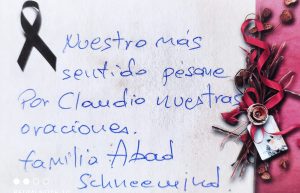 Nuestro más
sentido pésame
Por Claudio nuestras
oraciones.
familia Abad
Schneewind